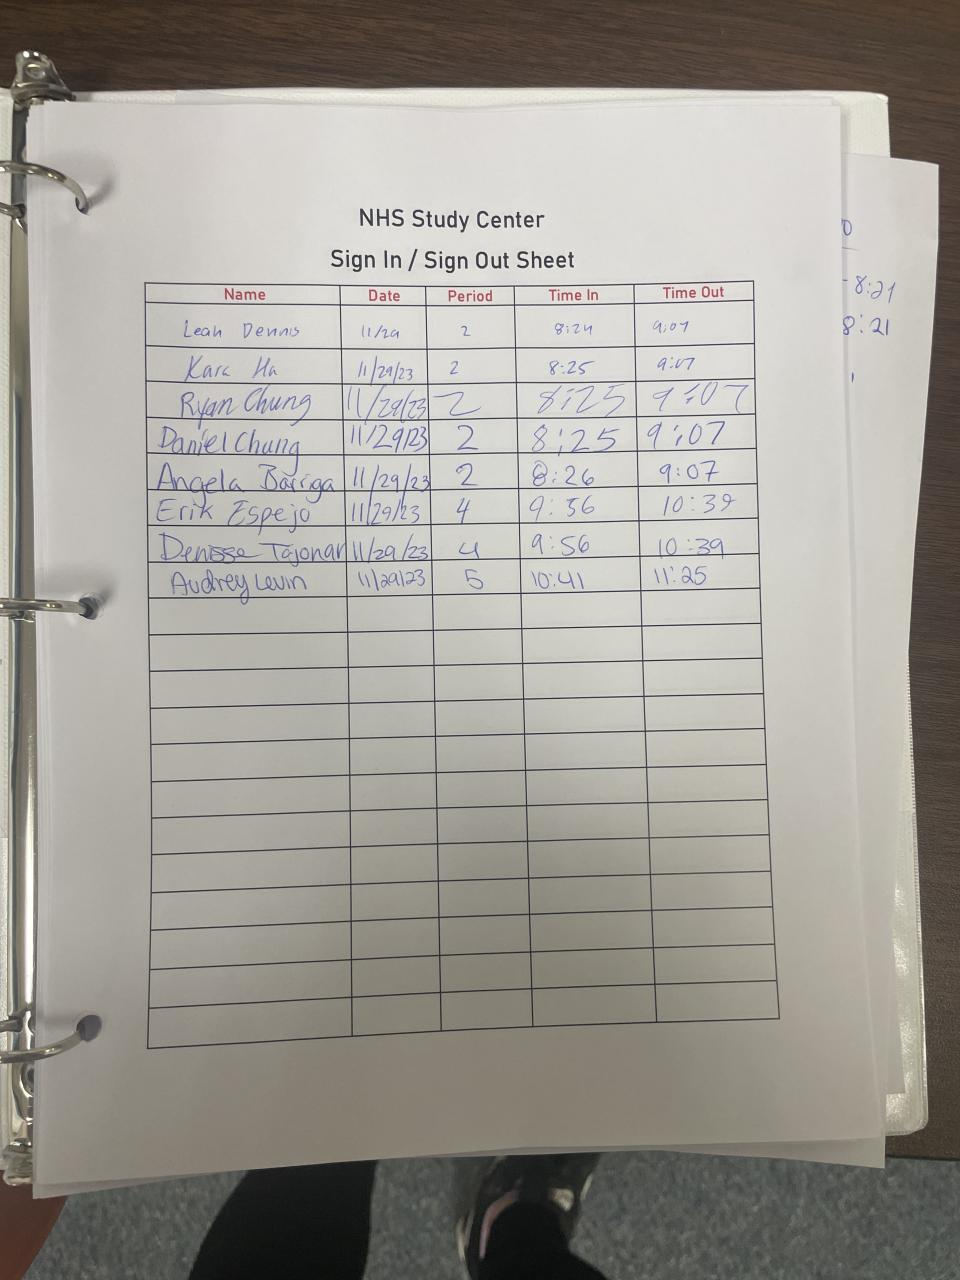 NHS Study Center
Sign In / Sign Out Sheet
Name Date Period Time In Time Out
Leah Dennis 11/29 2 8:24 9:07
Kara Ha 11/29/23 2 8:25 9:07
Ryan Chung 11/29/23 2 8:25 9:07
Daniel Chung 11/29/23 2 8:25 9:07
Angela Barriga 11/29/23 2 8:26 9:07
Erik Espejo 11/29/23 4 9:56 10:39
Denisse Tajonar 11/29/23 4 9:56 10:39
Audrey Levin 11/29/23 5 10:41 11:25
8:21
8:21